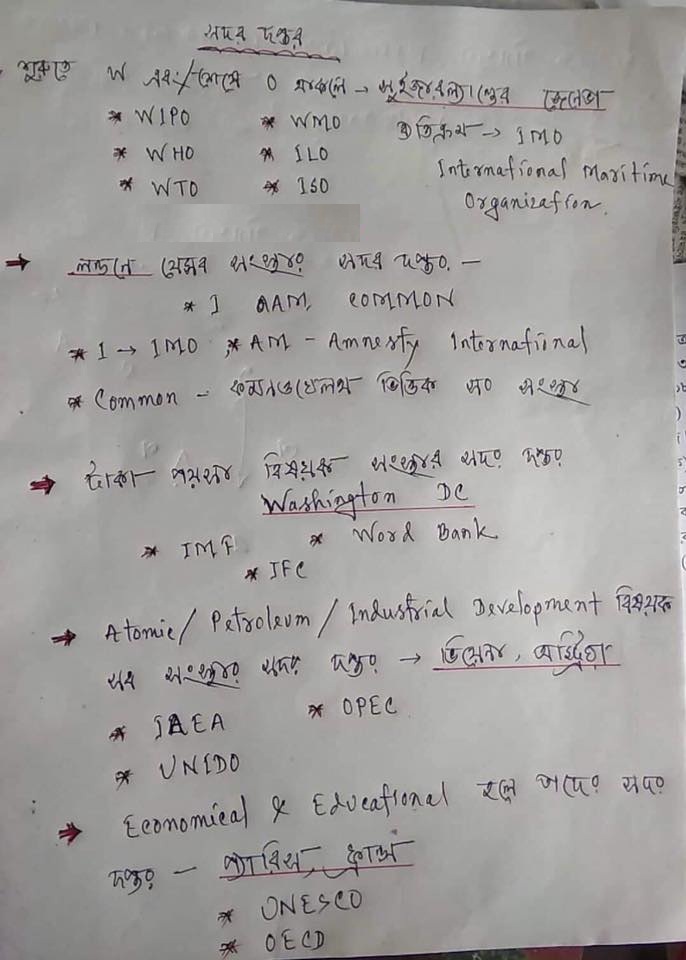 সদর দপ্তর
শুরুতে W এবং/শেষে O থাকলে → সুইজারল্যান্ডের জেনেভা
* WIPO * WMO ব্যতিক্রম → IMO
* WHO * ILO International Maritime
* WTO * ISO Organization.
→ লন্ডনে যেসব সংস্থার সদর দপ্তর –
* I AM, COMMON
* I → IMO, * AM – Amnesty International
* Common – কমনওয়েলথ ভিত্তিক সব সংস্থার
→ টাকা পয়সার বিষয়ক সংস্থার সদর দপ্তর
Washington DC
* IMF * Word Bank
* IFC
→ Atomic/ Petroleum / Industrial Development বিষয়ক
সব সংস্থার সদর দপ্তর → ভিয়েনা, অস্ট্রিয়া
* IAEA * OPEC
* UNIDO
→ Economical & Educational হলে তাদের সদর
দপ্তর – প্যারিস, ফ্রান্স
* UNESCO
* OECD